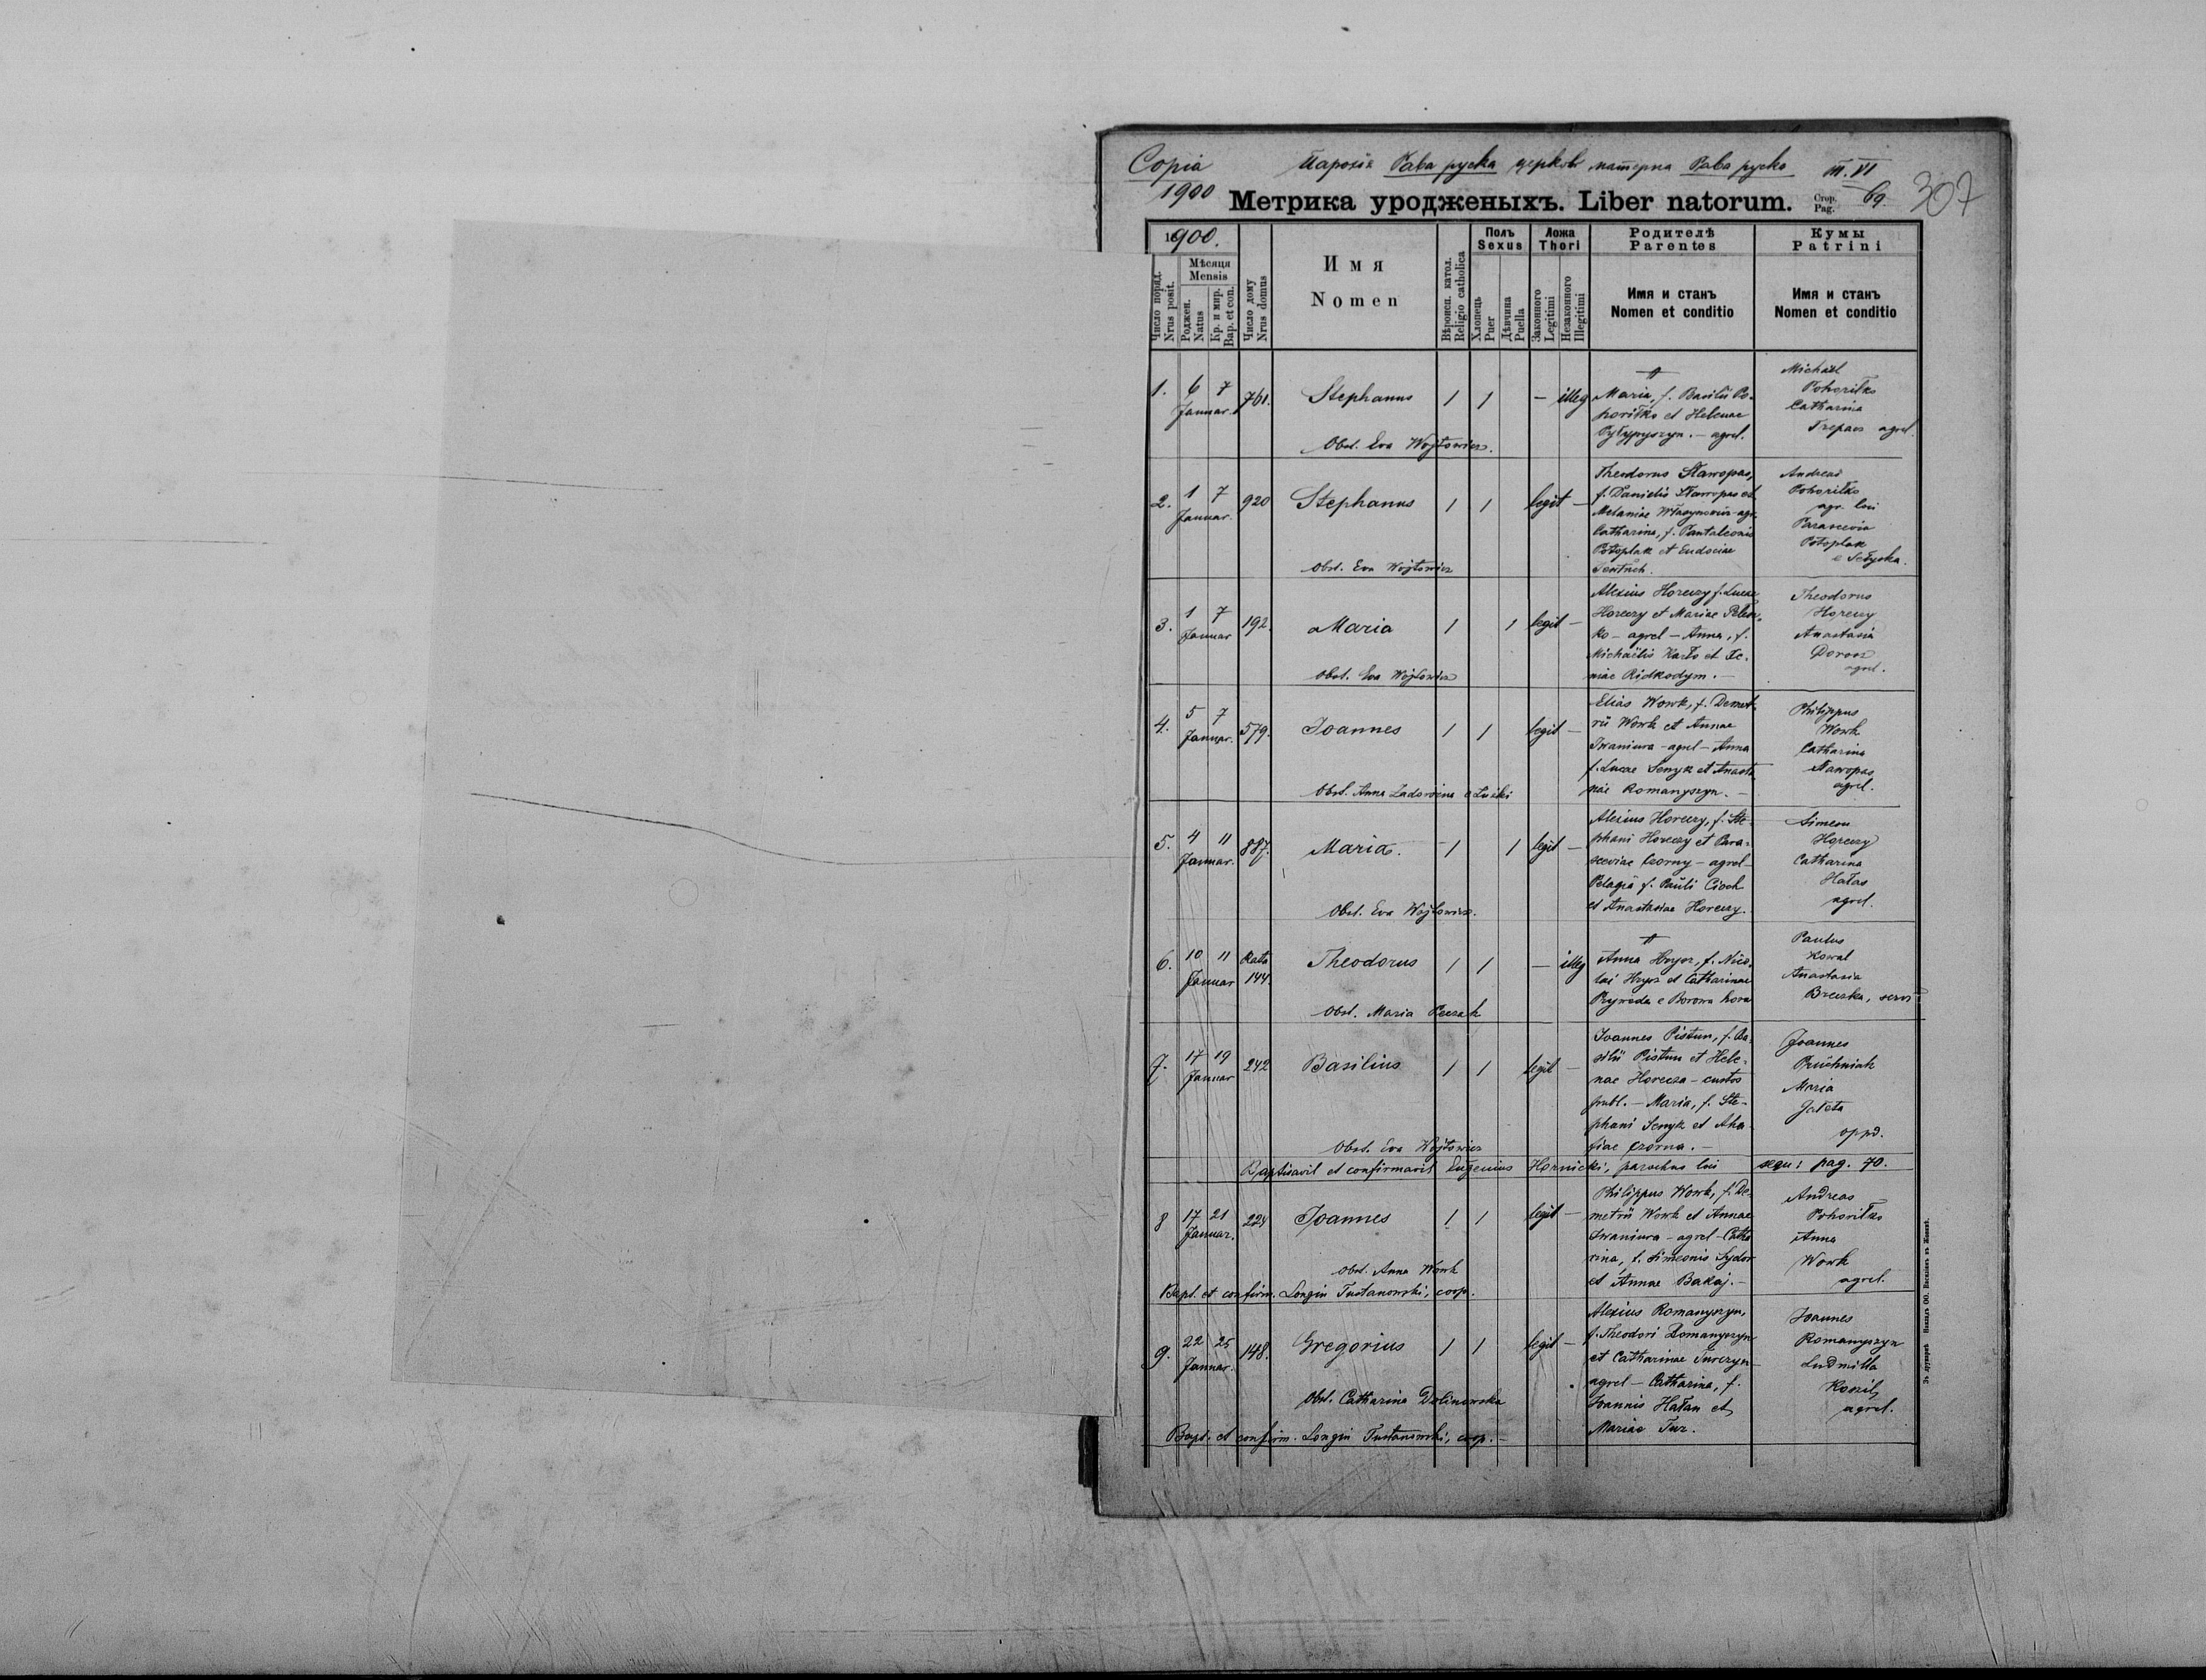 Copia
1900
Парохія Рава руска церковь матерна Рава руска
III. VI
Метрика уродженыхъ. Liber natorum.
Стор. Pag. 69
307
1900.
Число поряд. Nrus posit.
Мѣсяця Mensis
Роджен. Natus
Кр. и мир. Bap. et con.
Число дому Nrus domus
Имя
Nomen
Вѣроисп. катол. Religio catholica
Полъ Sexus
Хлопець Puer
Дѣвчина Puella
Ложа Thori
Законного Legitimi
Незаконного Illegitimi
Родителѣ
Parentes
Имя и станъ
Nomen et conditio
Кумы
Patrini
Имя и станъ
Nomen et conditio
1. 6 7 Januar. 761. Stephanus 1 1 – illeg
Maria, f. Basilii Po-
horiłko et Helenae
Pyłypyszyn. – agrel.
Michaël
Pohoriłko
Catharina
Trepacz agrel.
Obst. Eva Wojtowicz.
2. 1 7 Januar. 920 Stephanus 1 1 legit –
Theodorus Staropas,
f. Danielis Staropas et
Melaniae - agr.
Catharina, f. Pantaleonis
Potoplak et Eudociae
Andreas
Pohoriłko
agr. loci
Parascevia
Potoplak
Obst. Eva Wojtowicz
3. 1 7 Januar 192. Maria 1 1 legit –
Alexius Horeczy f. Lucae
Horeczy et Mariae
ko – agrel – Anna, f.
Michaëlis et Xe-
niae Ridkodym. –
Theodorus
Horeczy
Anastasia
Dorosz
agrel.
Obst. Eva Wojtowicz
4. 5 7 Januar. 579. Joannes 1 1 legit –
Elias Wowk, f. Demet-
rii Wowk et Annae
Iwaniura – agrel – Anna
f. Lucae Senyk et Anasta
siae Romanyszyn. –
Philippus
Wowk
Catharina
Staropas
agrel.
Obst. Anna
5. 4 11 Januar. 887. Maria. 1 1 legit –
Alexius Horeczy, f. Ste-
phani Horeczy et Para-
sceviae Czorny – agrel –
Pelagia f. Pauli Cioch
et Anastasiae Horeczy.
Simeon
Horeczy
Catharina
Hałas
agrel.
Obst. Eva Wojtowicz.
6. 10 11 Januar Rata 144. Theodorus 1 1 – illeg
Anna Hryc, f. Nico-
lai Hryc et Catharinae
Pryweda e Borowa hora
Paulus
Kowal
Anastasia
Obst. Maria
7. 17 19 Januar 242 Basilius 1 1 legit –
Joannes Pistun, f. Ba-
silii Pistun et Hele-
nae Horecza – custos
publ. – Maria, f. Ste-
phani Senyk et Aha-
fiae Czorna. –
Joannes
Pruchniak
Maria
oppd.
Obst. Eva Wojtowicz
Baptisavit et confirmavit Eugenius Hornicki, parochus loci sequ: pag. 70.
8 17 21 Januar. 224 Joannes 1 1 legit –
Philippus Wowk, f. De-
metrii Wowk et Annae
Iwaniura – agrel – Catha
rina, f. Simeonis Sydor
et Annae Bakaj. –
Andreas
Pohoriłko
Anna
Wowk
agrel.
Obst. Anna Wowk
Bapt. et confirm. Longin Tustanowski, coop.
9. 22 25 Januar. 148. Gregorius 1 1 legit –
Alexius Romanyszyn,
f. Theodori Romanyszyn
et Catharinae Turczyn –
agrel – Catharina, f.
Joannis Hałan et
Mariae Tur.
Joannes
Romanyszyn
Ludmilla
agrel.
Obst. Catharina Dolinowska
Bapt. et confirm. Longin Tustanowski, coop. –